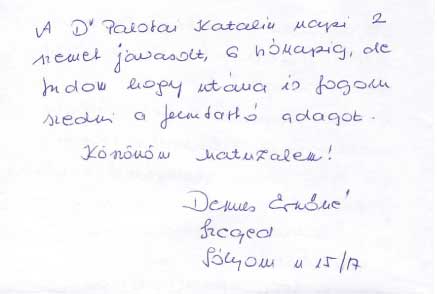 A Dr Palotai Katalin napi 2
szemet javasolt, 6 hónapig, de
tudom hogy utána is fogom
szedni a fenntartó adagot.
Köszönöm naturzalem!
Demus Ernőné
Szeged
Sólyom u 15/17